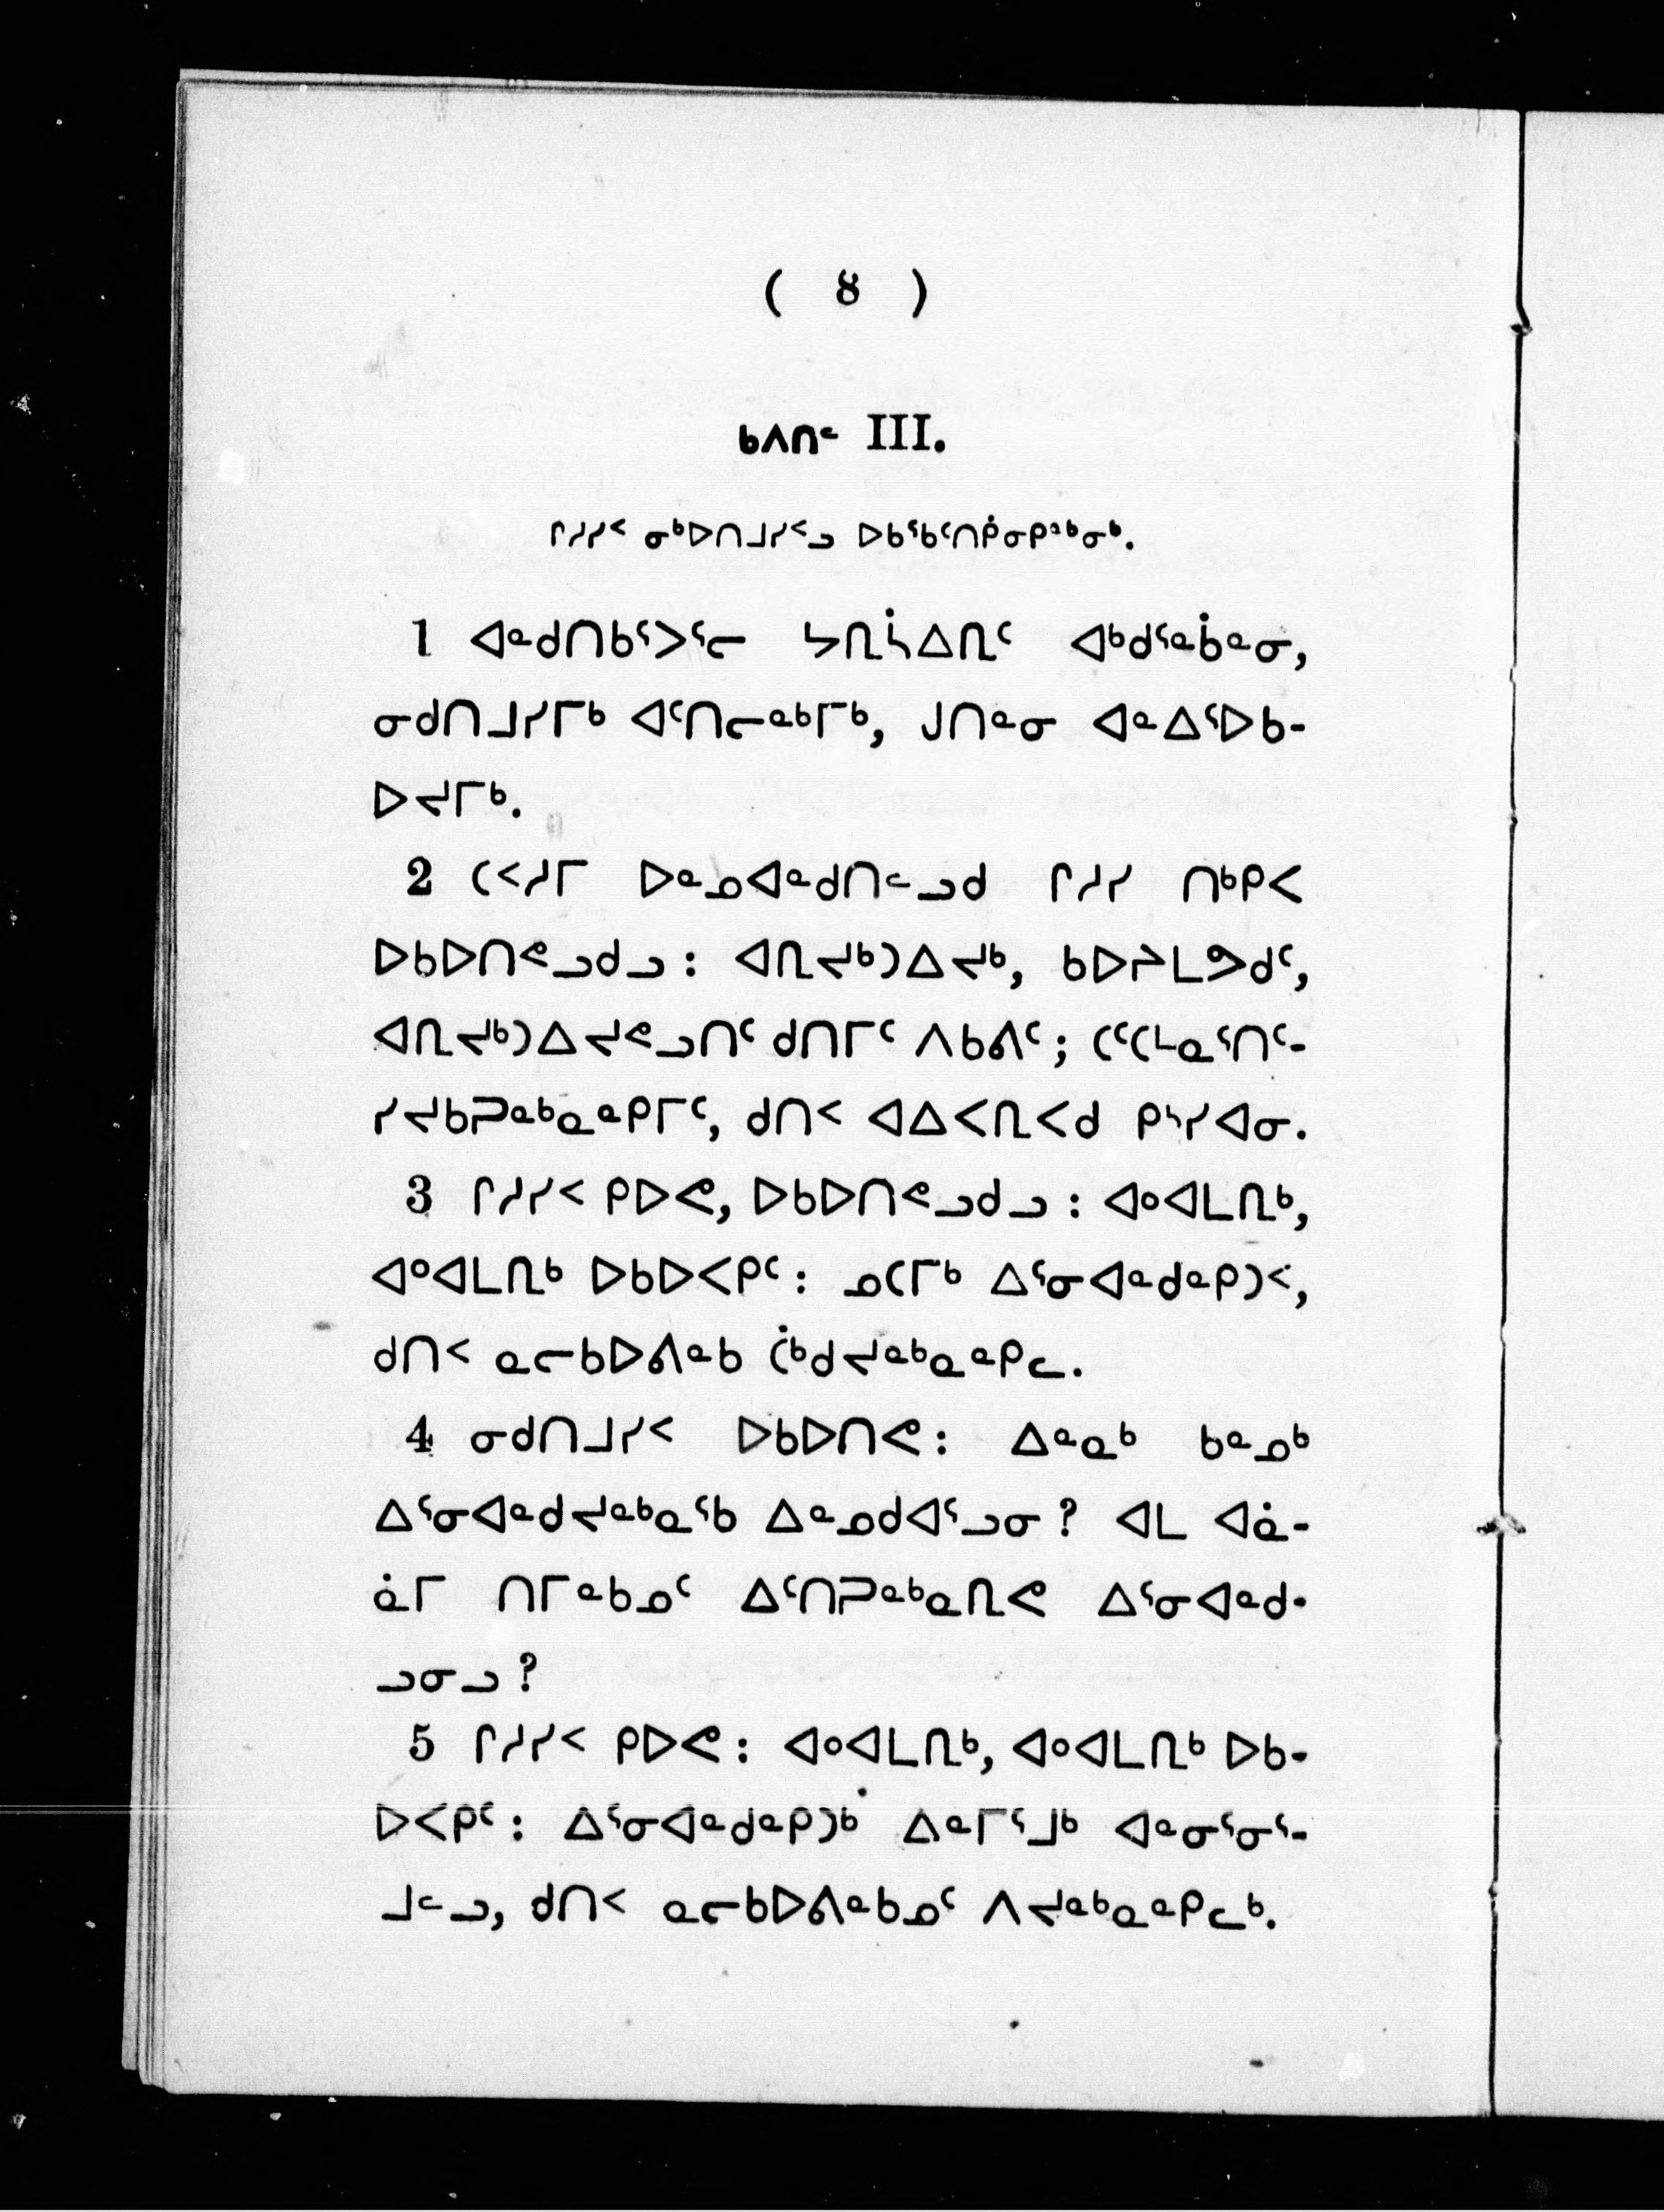 ( 8 )
ᑲᐱᑎᓪ III.
ᒋᓱᓯᑉ ᓂᒃᐅᑎᒧᓯᑉᓗ ᐅᑲᕐᑲᑦᑎᑮᓂᑭᖕᓂᒃ.
1 ᐊᓐᑯᑎᑲᕐᐳᕐᓕ ᔭᕆᓵᐃᕆᑦ ᐊᒃᑯᕐᓇᑳᓐᓂ,
ᓂᑯᑎᒧᓯᒥᒃ ᐊᑦᑎᓕᓐᒃᒥᒃ, ᒍᑎᓐᓂ ᐊᓐᐃᕐᐅᑲ-
ᐅᔪᒥᒃ.
2 ᑕᑉᓱᒥ ᐅᓐᓄᐊᓐᑯᑎᓪᓗᑯ ᒋᓱᓯ ᑎᒃᑭᐸ
ᐅᑲᐅᑎᕙᓗᑯᓗ: ᐊᕆᔪᒃᑐᐃᔪᒃ, ᑲᐅᔨᒪᕗᑯᑦ,
ᐊᕆᔪᒃᑐᐃᔪᕙᓗᑎᑦ ᑯᑎᒥᑦ ᐱᑲᕕᑦ; ᑕᑦᑕᒻᓇᕐᑎᑦ-
ᓯᔪᑲᑐᓐᒃᓇᓐᑭᒥᑦ, ᑯᑎᑉ ᐊᐃᐸᕆᐸᑯ ᑭᔅᓯᐊᓂ.
3 ᒋᓱᓯᑉ ᑭᐅᕙ, ᐅᑲᐅᑎᕙᓗᑯᓗ: ᐊᐤᐊᒪᕆᒃ,
ᐊᐤᐊᒪᕆᒃ ᐅᑲᐅᐸᑭᑦ: ᓄᑕᒥᒃ ᐃᕐᓂᐊᓐᑯᓐᑭᑐᑉ,
ᑯᑎᑉ ᓇᓕᑲᐅᕕᓐᑲ ᑖᒃᑯᔪᓐᒃᓇᓐᑭᓚ.
4 ᓂᑯᑎᒧᓯᑉ ᐅᑲᐅᑎᕙ: ᐃᓐᓇᒃ ᑲᓐᓄᒃ
ᐃᕐᓂᐊᓐᑯᔪᓐᒃᓇᕐᑲ ᐃᓐᓄᑯᐊᕐᓗᓂ? ᐊᒪ ᐊᓈ-
ᓈᒥ ᑎᒥᓐᑲᓄᑦ ᐃᑦᑎᑐᓐᒃᓇᕆᕙ ᐃᕐᓂᐊᓐᑯ-
ᓗᓂᓗ?
5 ᒋᓱᓯᑉ ᑭᐅᕙ: ᐊᐤᐊᒪᕆᒃ, ᐊᐤᐊᒪᕆᒃ ᐅᑲ-
ᐅᐸᑭᑦ: ᐃᕐᓂᐊᓐᑯᓐᑭᑐᒃ ᐃᓐᒥᕐᒧᒃ ᐊᓐᓂᕐᓂᕐ-
ᒧᓪᓗ, ᑯᑎᑉ ᓇᓕᑲᐅᕕᓐᑲᓄᑦ ᐱᔪᓐᒃᓇᓐᑭᓚᒃ.